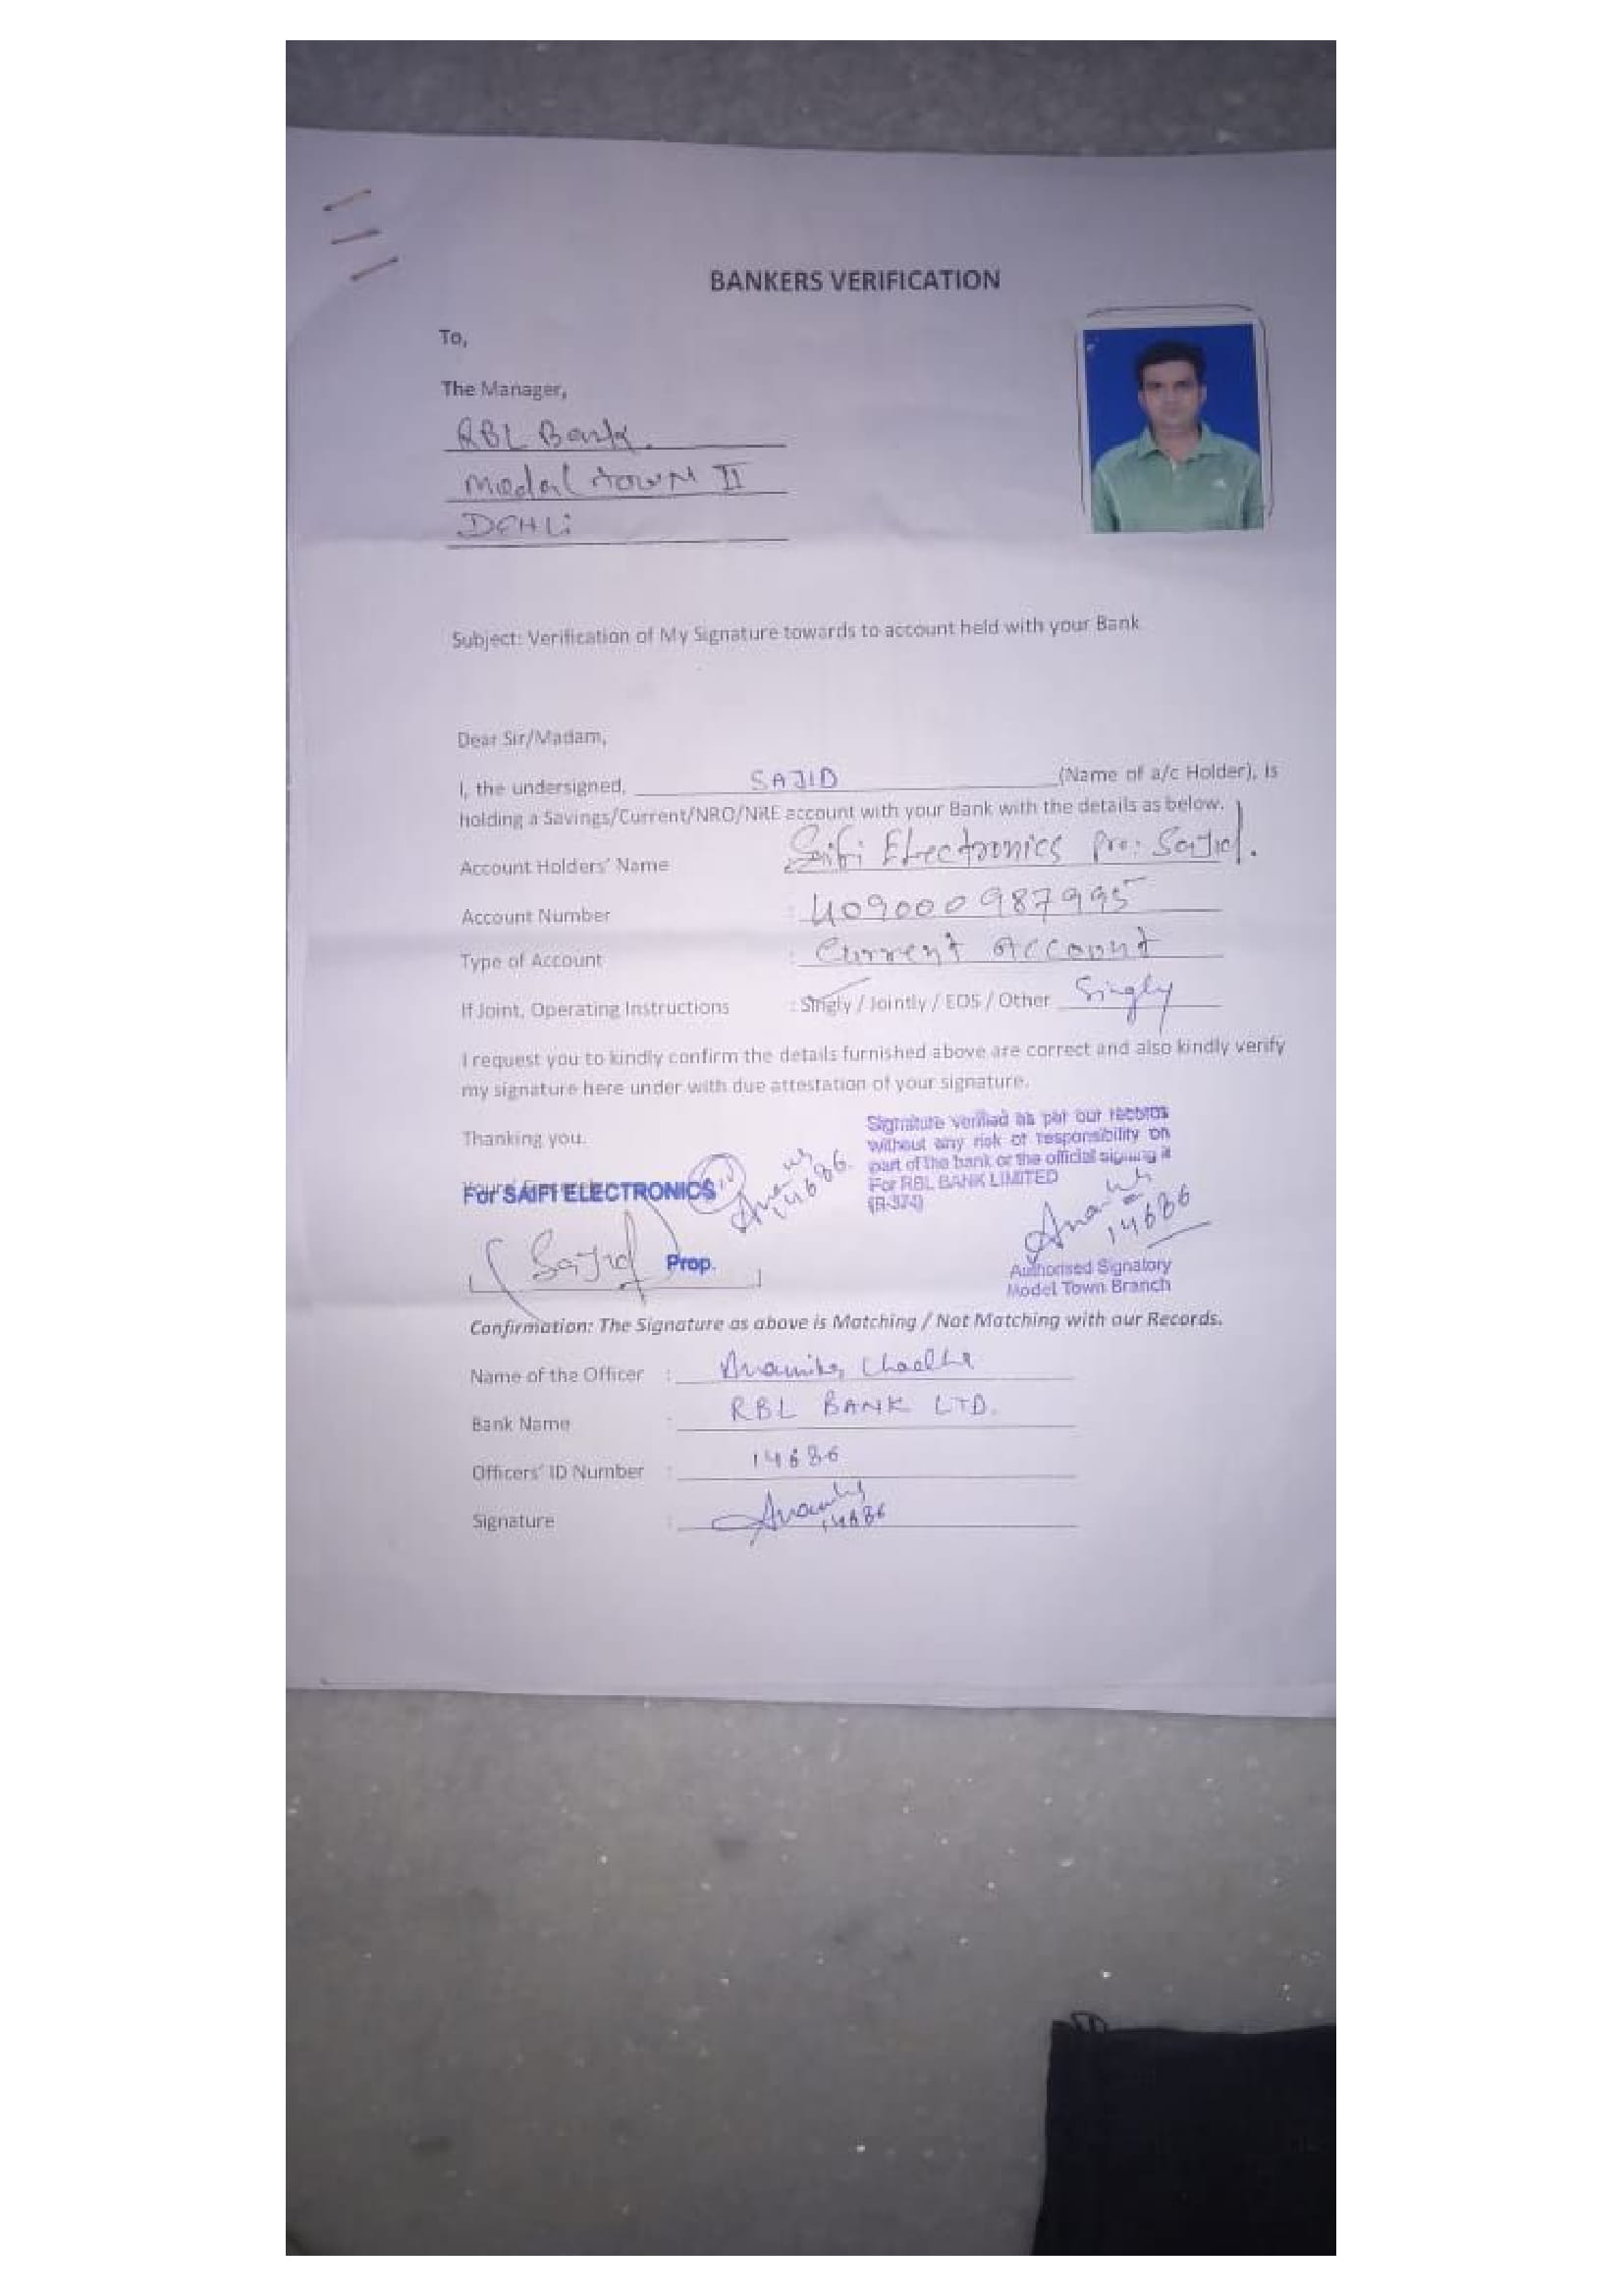 BANKERS VERIFICATION
To,
The Manager,
RBL Bank.
Modal town II
DEHLi
Subject: Verification of My Signature towards to account held with your Bank
Dear Sir/Madam,
I, the undersigned, SAJID (Name of a/c Holder), is
holding a Savings/Current/NRO/NRE account with your Bank with the details as below.
Account Holders' Name Saifi Electronics Pro: Sajid.
Account Number : 409000987995
Type of Account : Current Account
If Joint, Operating Instructions : Singly / Jointly / EOS / Other Singly
I request you to kindly confirm the details furnished above are correct and also kindly verify
my signature here under with due attestation of your signature.
Thanking you.
Signature verified as per our records
without any risk or responsibility on
part of the bank or the official signing it
For RBL BANK LIMITED
14686
For SAIFI ELECTRONICS
14686
Sajid Prop.
Authorised Signatory
Model Town Branch
Confirmation: The Signature as above is Matching / Not Matching with our Records.
Name of the Officer :
Bank Name : RBL BANK LTD.
Officers' ID Number : 14686
Signature : 14686